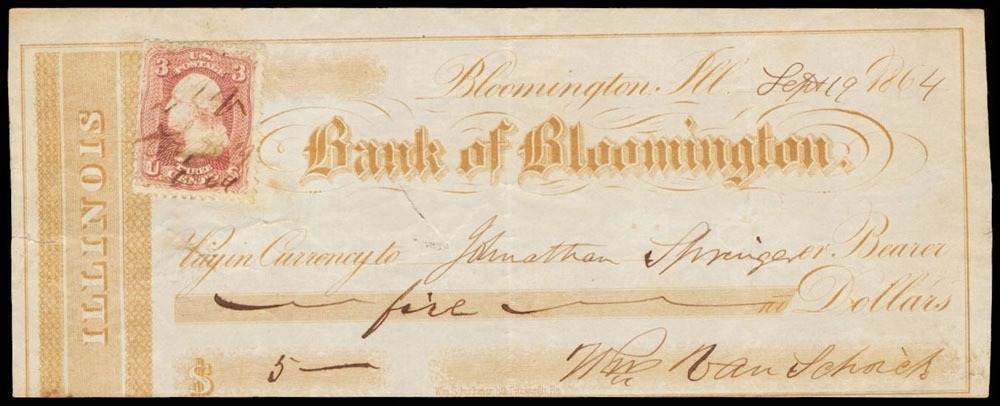 ILLINOIS
3 U.S. POSTAGE 3
THREE
CENTS
Bloomington, Ill. Sept 19 1864
Bank of Bloomington.
Pay in Currency to Johnathan Springer or Bearer
five Dollars
$ 5 Wm Van Schoick